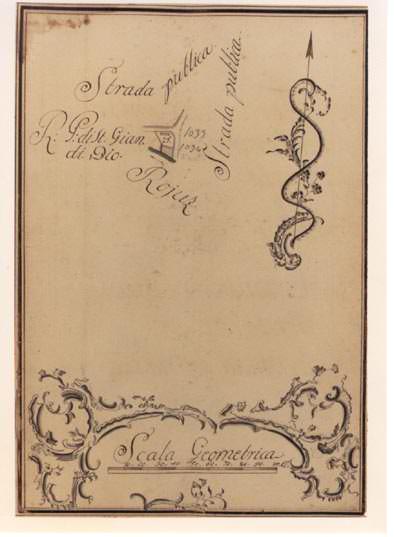 Strada publica
Strada publica
R. P. di St. Gian.
di Dio.
1033
1034
Scala Geometrica